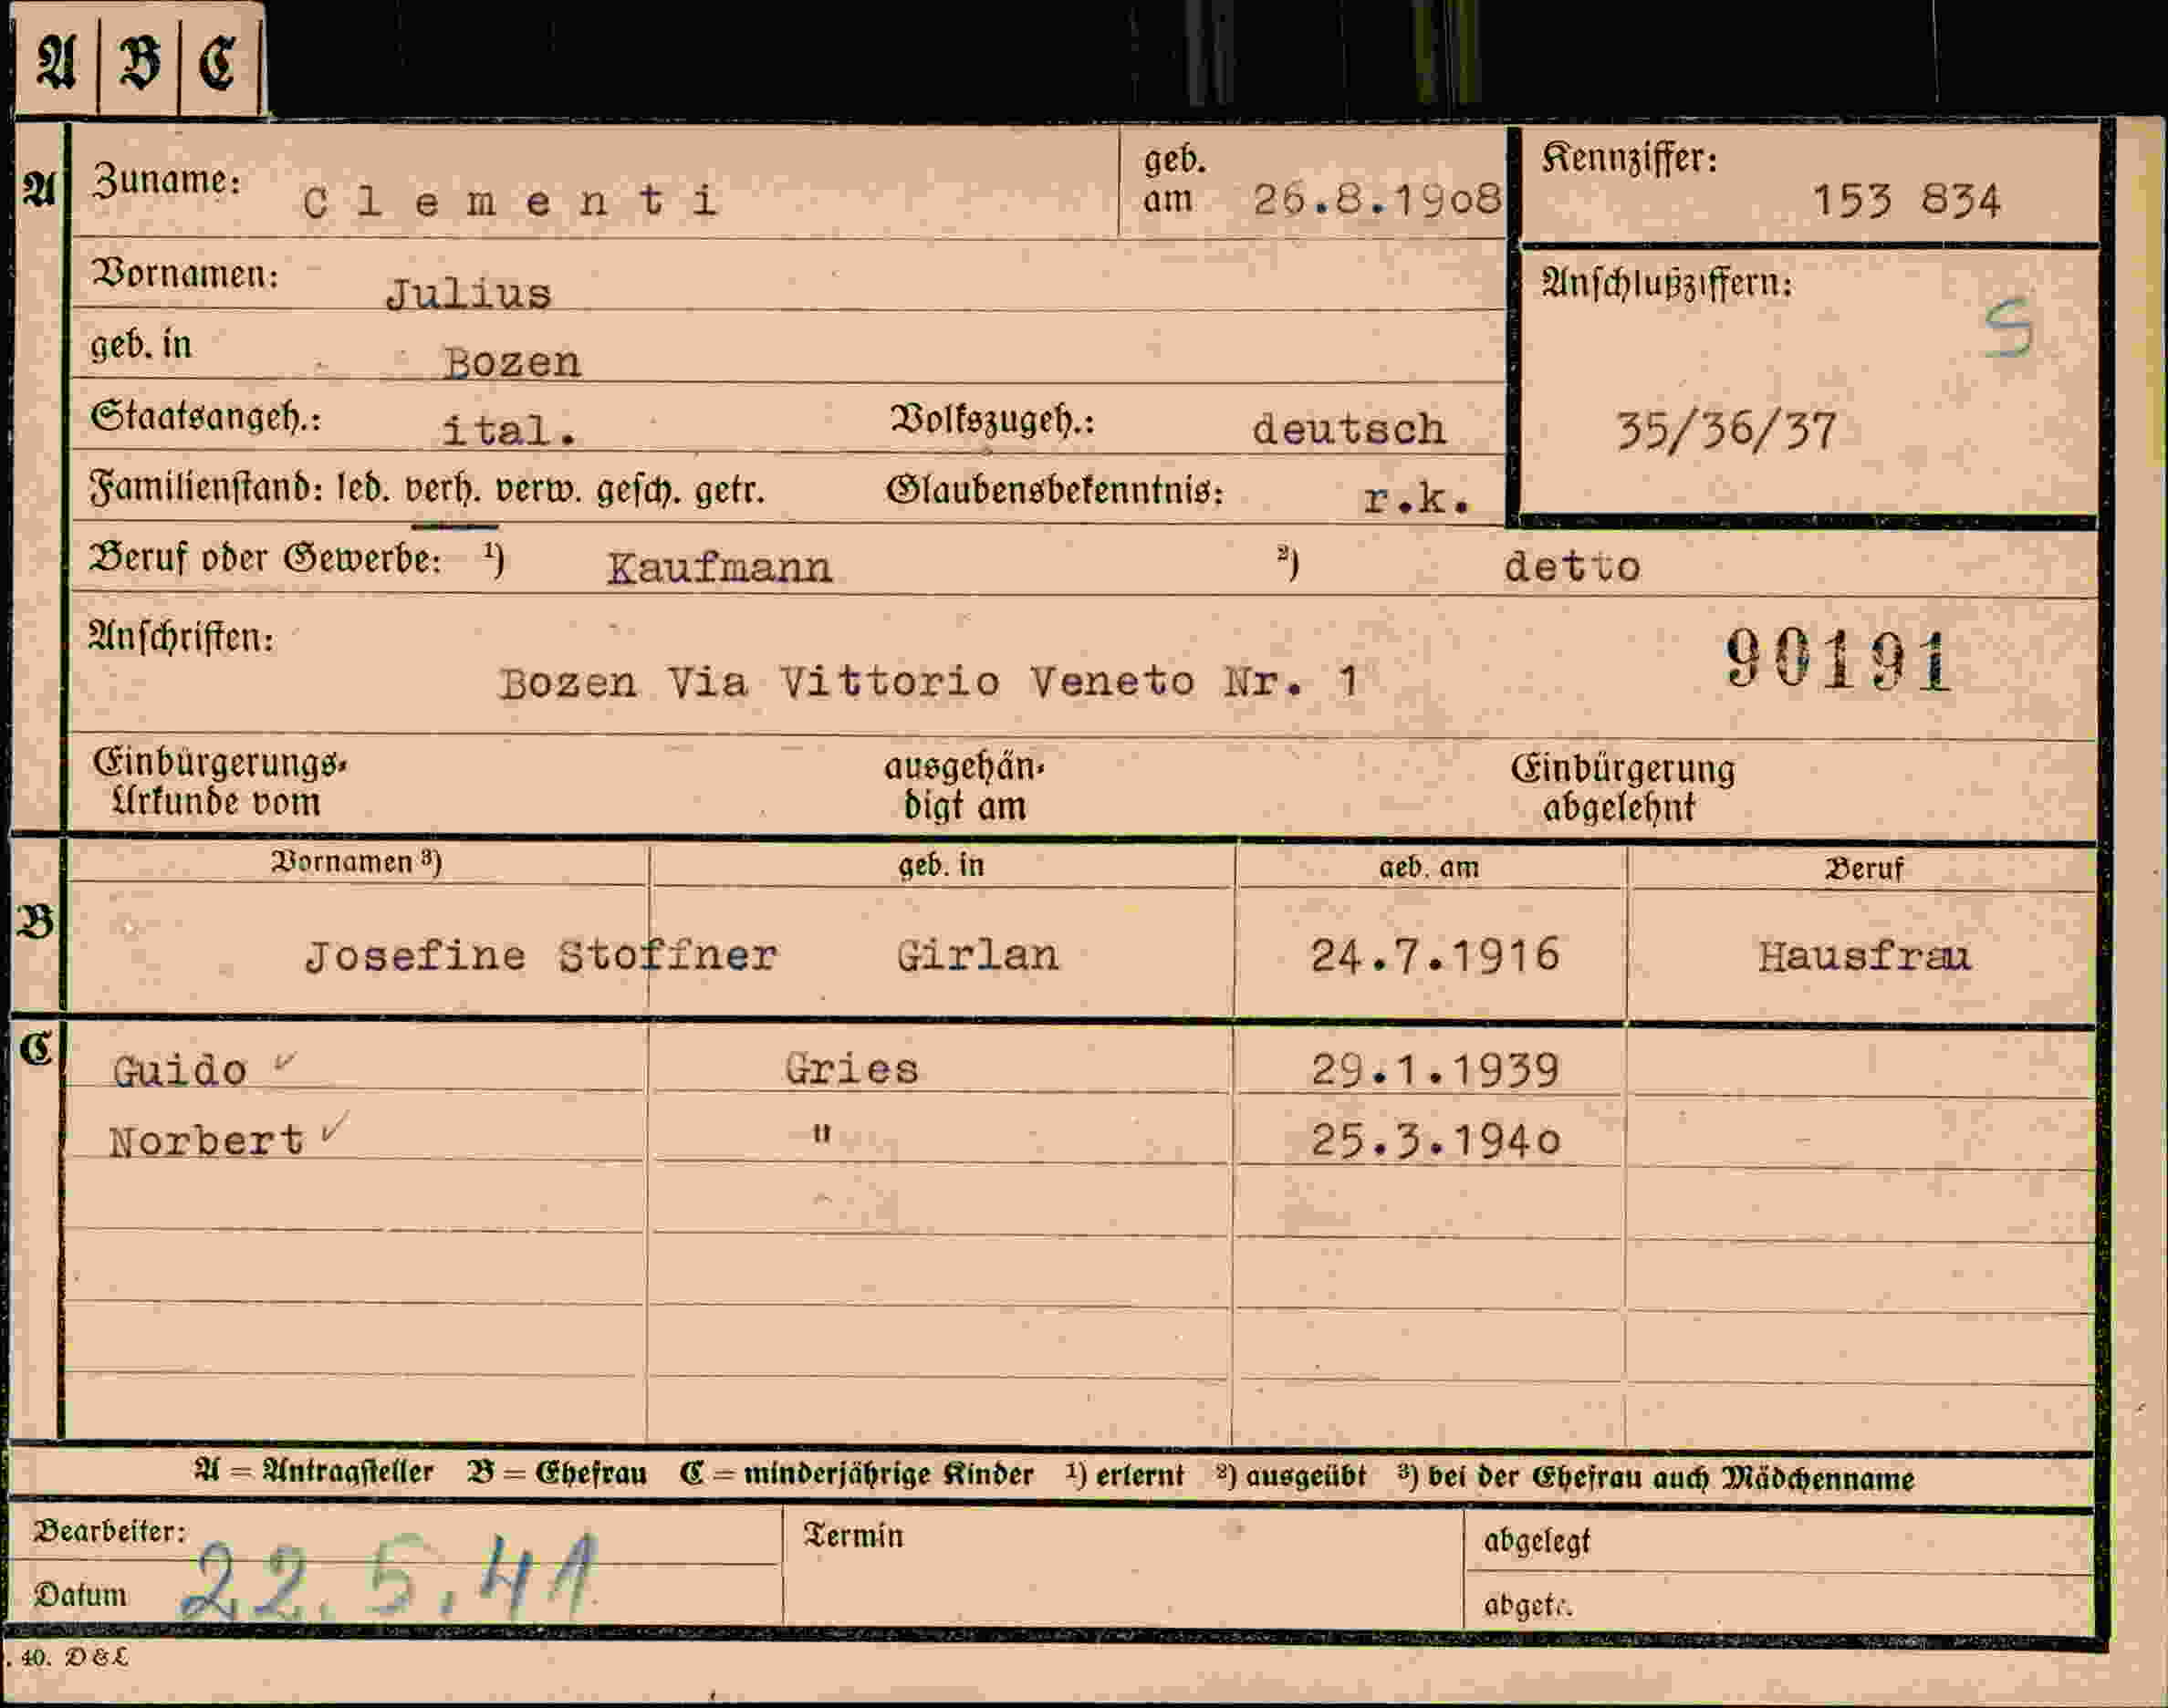 A B C
A Zuname: Clementi geb. am 26.8.1908 Kennziffer: 153 834
Vornamen: Julius Anschlußziffern: S
geb. in Bozen
Staatsangeh.: ital. Volkszugeh.: deutsch 35/36/37
Familienstand: led. verh. verw. gesch. getr. Glaubensbekenntnis: r.k.
Beruf oder Gewerbe: ¹) Kaufmann ²) detto
Anschriften: 90191
Bozen Via Vittorio Veneto Nr. 1
Einbürgerungs- ausgehän- Einbürgerung
Urkunde vom digt am abgelehnt
Vornamen ³) geb. in geb. am Beruf
B Josefine Stoffner Girlan 24.7.1916 Hausfrau
C Guido ✓ Gries 29.1.1939
Norbert ✓ " 25.3.1940
A = Antragsteller B = Ehefrau C = minderjährige Kinder ¹) erlernt ²) ausgeübt ³) bei der Ehefrau auch Mädchenname
Bearbeiter: Termin abgelegt
Datum 22.5.41 abgetr.
. 40. D & L